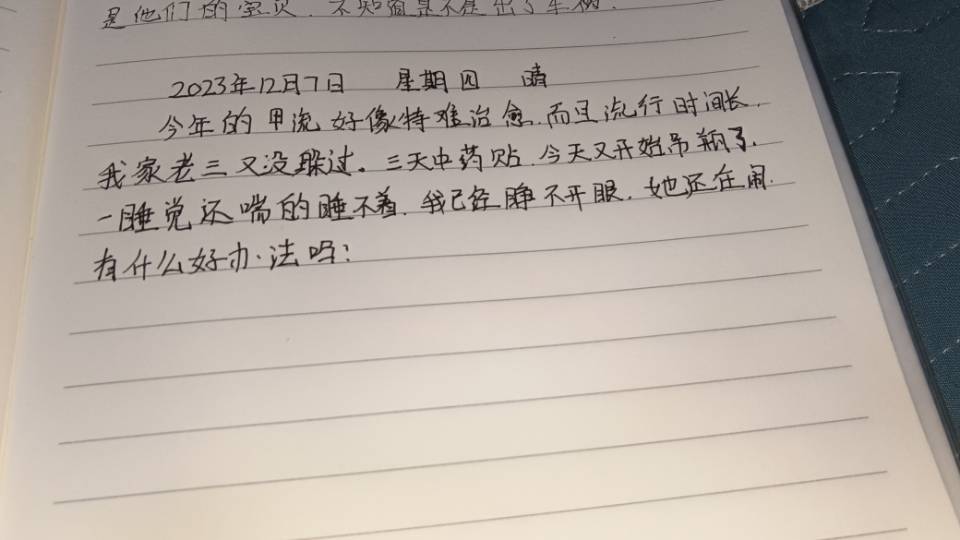 是他们的宝贝.不知道是不是出了车祸.
2023年12月7日 星期四 晴
今年的甲流好像特难治愈.而且流行时间长.
我家老三又没躲过.三天中药贴.今天又开始吊瓶了.
一睡觉还喘的睡不着.我已经睁不开眼.她还在闹.
有什么好办法吗?